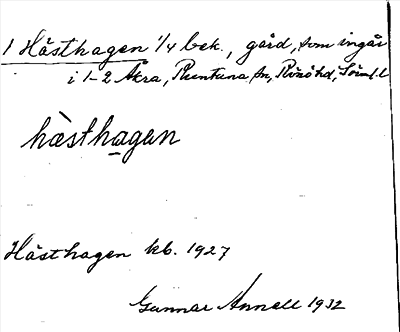 1 Hästhagen 1/4 bek., gård, som ingår
i 1-2 Åkra, Runtuna sn, Rönö hd, Söml. l
hàsthagen
Hästhagen kb. 1927
Gunnar Annell 1932